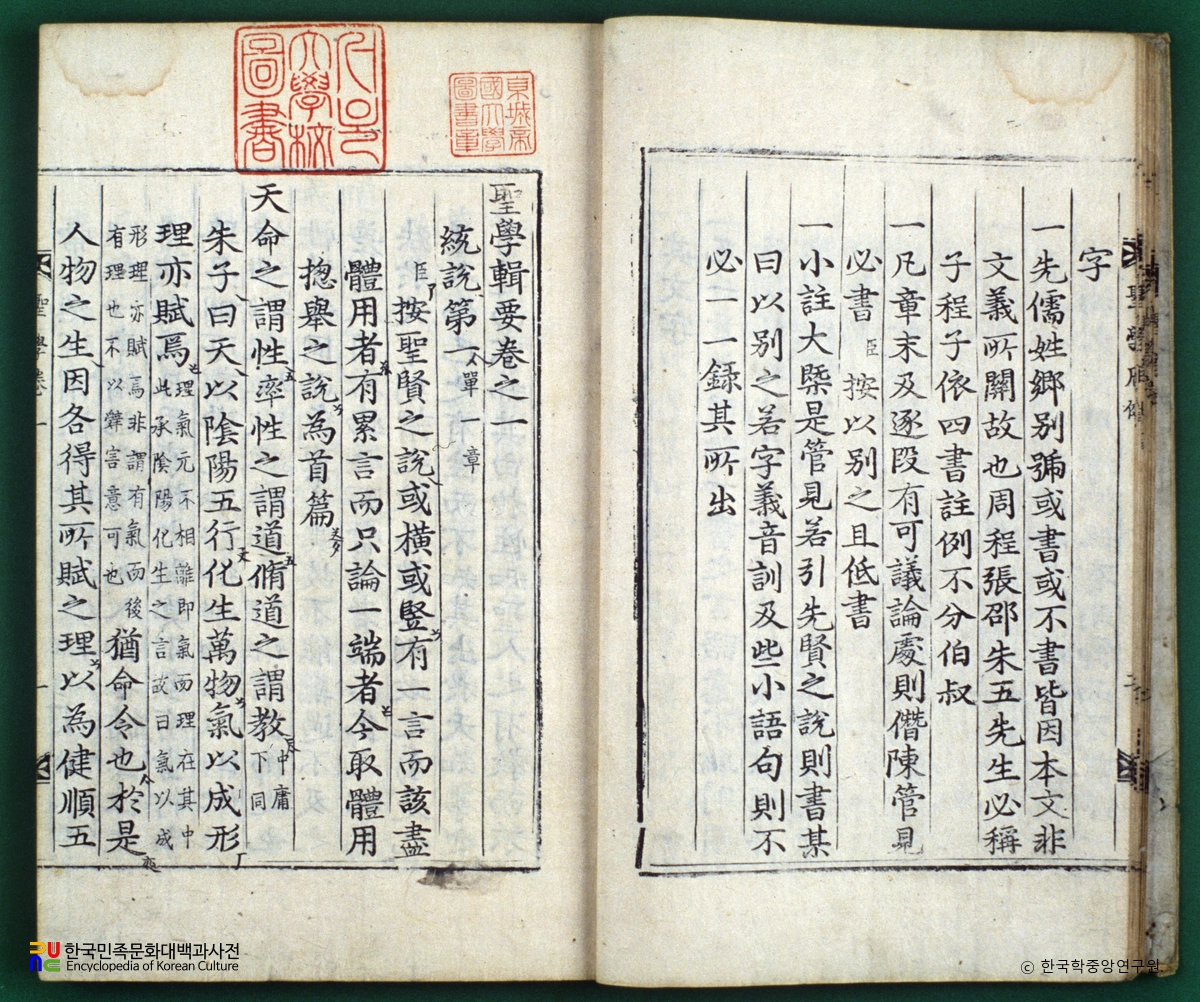 字
一先儒姓鄉別號或書或不書皆因本文非
文義所關故也周程張邵朱五先生必稱
子程子依四書註例不分伯叔
一凡章末及逐段有可議論處則僭陳管見
必書臣按以別之且低書
一小註大槩是管見若引先賢之說則書某
曰以別之若字義音訓及些小語句則不
必一一錄其所出
聖學輯要卷之一
統說第一單一章
臣按聖賢之說或橫或竪有一言而該盡
體用者有累言而只論一端者今取體用
揔舉之說為首篇
天命之謂性率性之謂道脩道之謂教中庸下同
朱子曰天以陰陽五行化生萬物氣以成形
理亦賦焉理氣元不相離即氣而理在其中
此承陰陽化生之言故曰氣以成
形理亦賦焉非謂有氣而後
有理也不以辭害意可也猶命令也於是
人物之生因各得其所賦之理以為健順五
聖學卷一
一
大學校圖書
東城帝國大學圖書章
한국민족문화대백과사전
Encyclopedia of Korean Culture
© 한국학중앙연구원